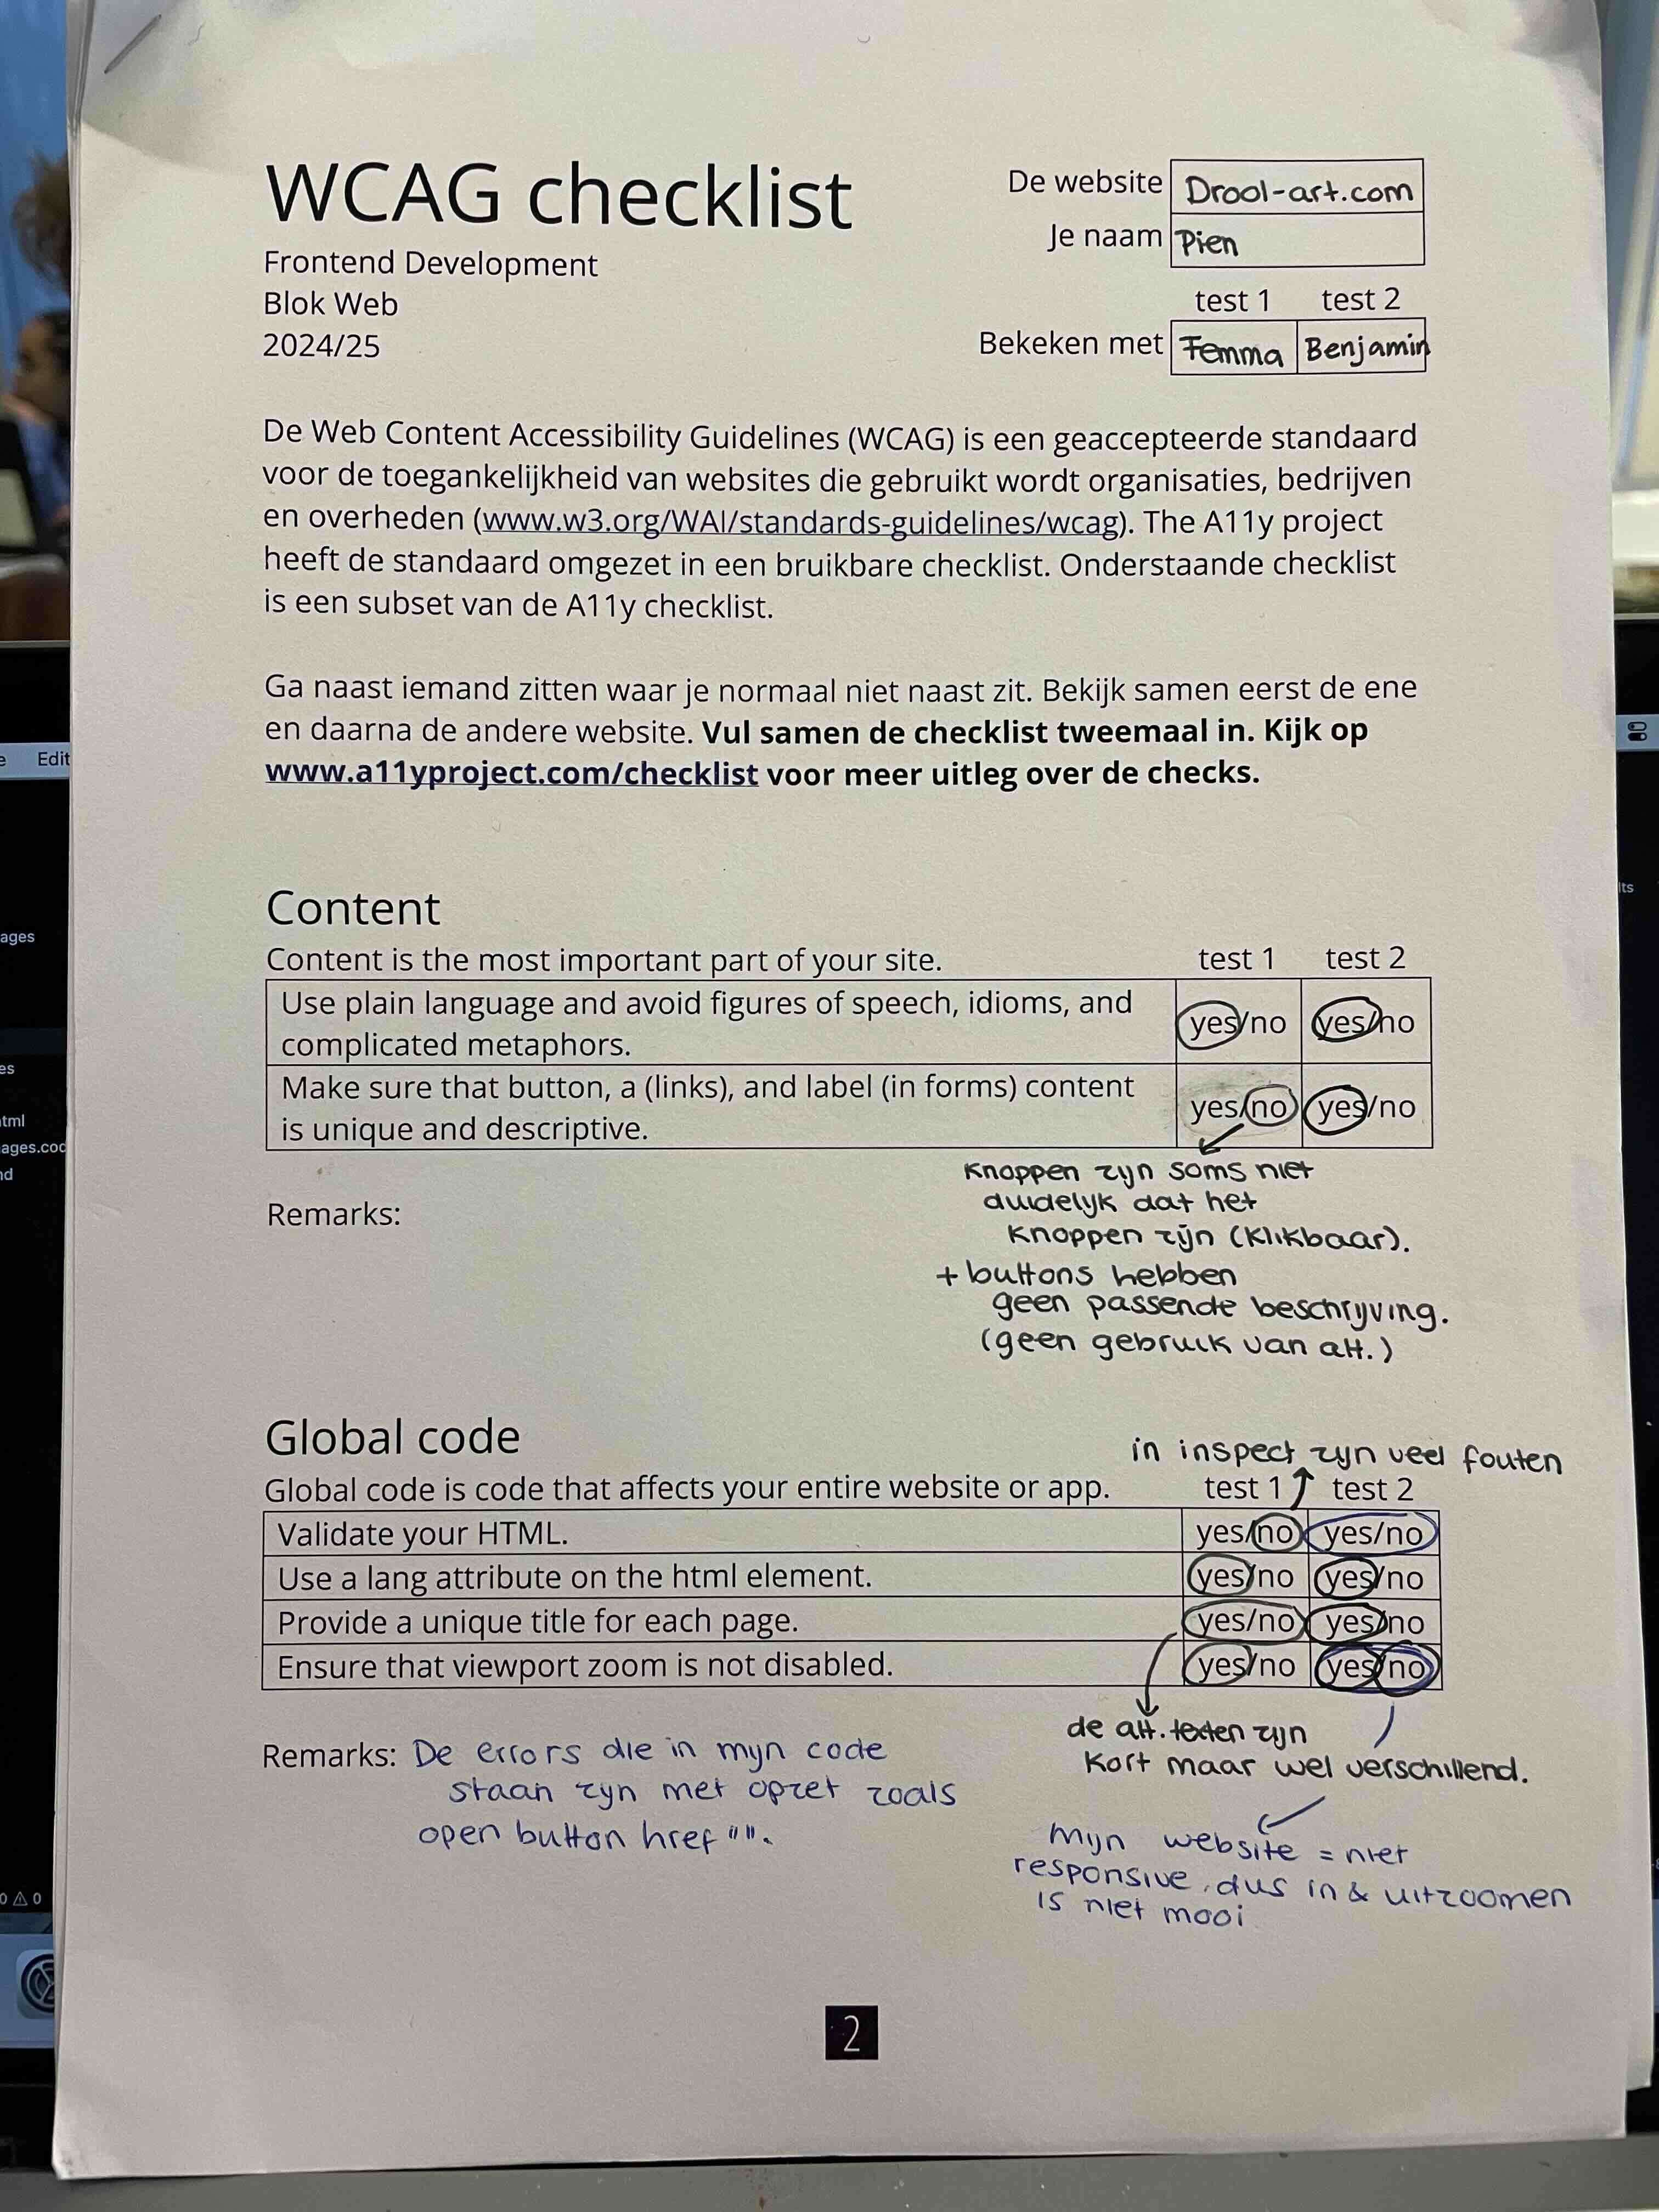 WCAG checklist
Frontend Development
Blok Web
2024/25
De website Drool-art.com
Je naam Pien
test 1 test 2
Bekeken met Femma Benjamin
De Web Content Accessibility Guidelines (WCAG) is een geaccepteerde standaard
voor de toegankelijkheid van websites die gebruikt wordt organisaties, bedrijven
en overheden (www.w3.org/WAI/standards-guidelines/wcag). The A11y project
heeft de standaard omgezet in een bruikbare checklist. Onderstaande checklist
is een subset van de A11y checklist.
Ga naast iemand zitten waar je normaal niet naast zit. Bekijk samen eerst de ene
en daarna de andere website. Vul samen de checklist tweemaal in. Kijk op
www.a11yproject.com/checklist voor meer uitleg over de checks.
Content
Content is the most important part of your site. test 1 test 2
Use plain language and avoid figures of speech, idioms, and
complicated metaphors.
yes/no yes/no
Make sure that button, a (links), and label (in forms) content
is unique and descriptive.
yes/no yes/no
Remarks:
Knoppen zijn soms niet
duidelijk dat het
Knoppen zijn (klikbaar).
+ buttons hebben
geen passende beschrijving.
(geen gebruik van alt.)
Global code
in inspect zijn veel fouten
Global code is code that affects your entire website or app. test 1 test 2
Validate your HTML. yes/no yes/no
Use a lang attribute on the html element. yes/no yes/no
Provide a unique title for each page. yes/no yes/no
Ensure that viewport zoom is not disabled. yes/no yes/no
de alt. texten zijn
kort maar wel verschillend.
Remarks: De errors die in mijn code
staan zijn met opzet zoals
open button href "".
mijn website = niet
responsive, dus in & uitzoomen
is niet mooi
2
Edit
ages
es
tml
ages.coc
lts